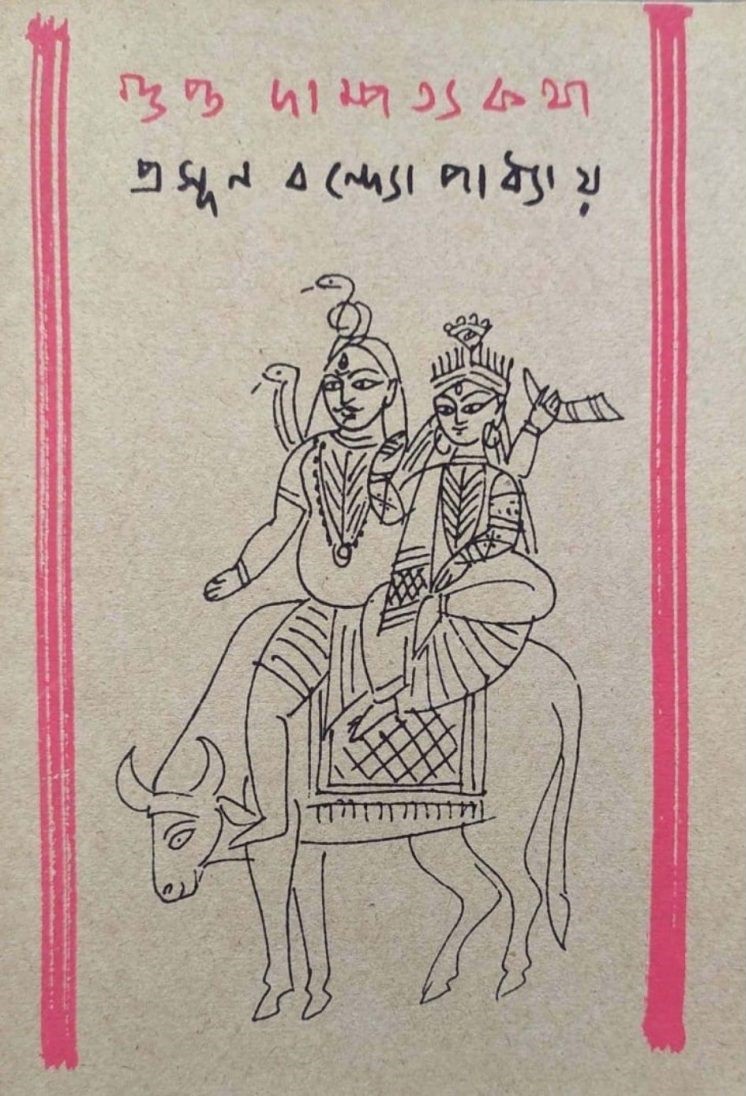 গুপ্ত দাম্পত্যকথা
প্রসূন বন্দ্যোপাধ্যায়